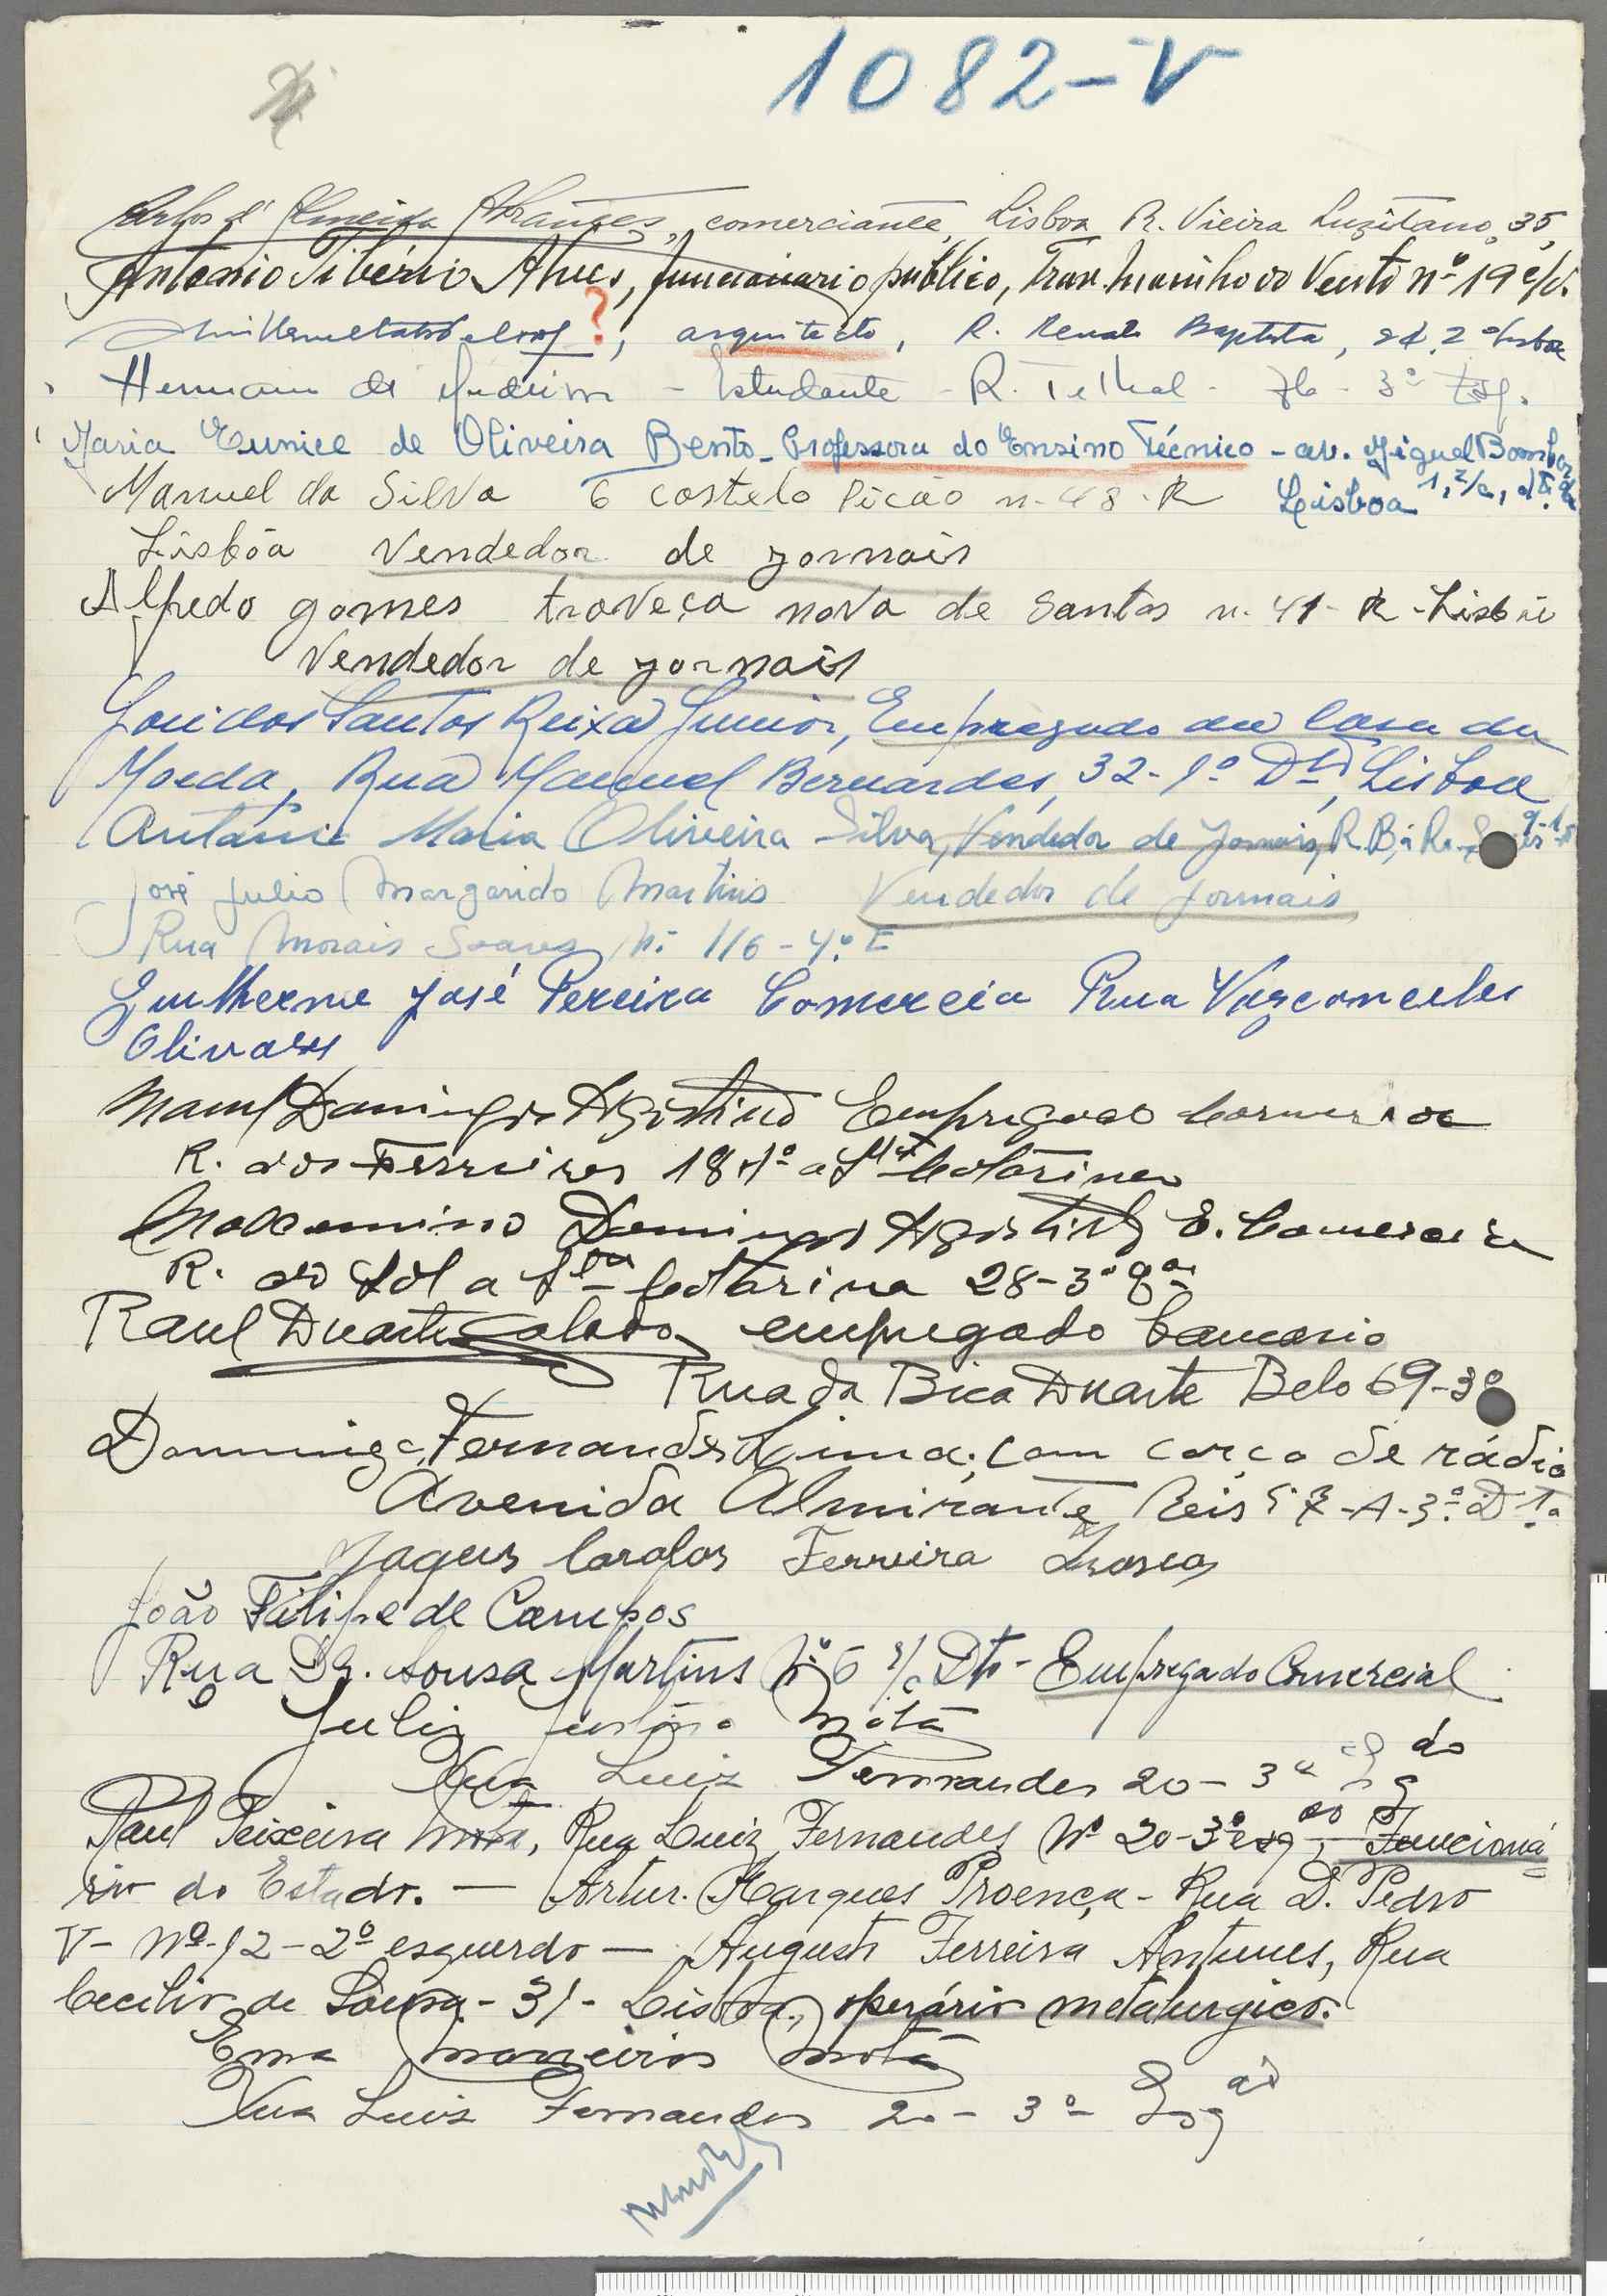 1082-V
Carlos d'Almeida Abrantes, comerciante, Lisboa R. Vieira Luzitano, 35,
Antonio Tiberio Alves, funcionario publico, Trav. Moinho do Vento nº 19 c/v.
?, arquitecto, R. Renato Baptista, 2 Lisboa
Hermano de Medeiros - Estudante - R. Telhal - 76 - 3º Esq.
Maria Eunice de Oliveira Bento - Professora do Ensino Técnico - av. Miguel Bombarda
Manuel da Silva costelo Picão n. 48 - R Lisboa 1, r/c, dtº
Lisbôa Vendedor de jornais
Alfredo gomes traveça nova de Santos n. 41 - R - Lisbôa
Vendedor de jornais
José dos Santos Reixa Junior, Empregado da Casa da
Moeda, Rua Manuel Bernardes, 32-1º Dtº, Lisboa
António Maria Oliveira Silva, Vendedor de Jornais, R.
José Julio Margarido Martins Vendedor de jornais
Rua Morais Soares Nº 116-4º E
Guilherme José Pereira Comercia Rua Vasconcelos
Olivaes
Manuel Domingos Agostinho Empregado Comercia
R. dos Ferreiros 18 1º a Stª Catarina
Maxemino Domingos Agostinho E. Comercia
R. do Sol a Stª Catarina 28-3º
Raul Duarte Calado empregado bancario
Rua da Bica Duarte Belo 69-3º
Domingo Fernandes Lima; com de rádio
Avenida Almirante Reis -A-3º Dtº
Jaques Carolos Ferreira
João Filipe de Campos
Rua Dr. Sousa Martins Nº 6 r/c Dtº - Empregado Comercial
Julia Justino Mota
Rua Luiz Fernandes 20 - 3º Esqdo
Raul Teixeira Mota, Rua Luiz Fernandes Nº 20-3º esqdo, - Funcioná-
rio do Estado. - Artur Marques Proença - Rua D. Pedro
V - Nº 12 - 2º esquerdo - Augusto Ferreira Antunes, Rua
Cecilio de Sousa - 31 - Lisboa, operário metalurgico.
Ema Monteiros Mota
Rua Luiz Fernandes 20 - 3º Esqdo